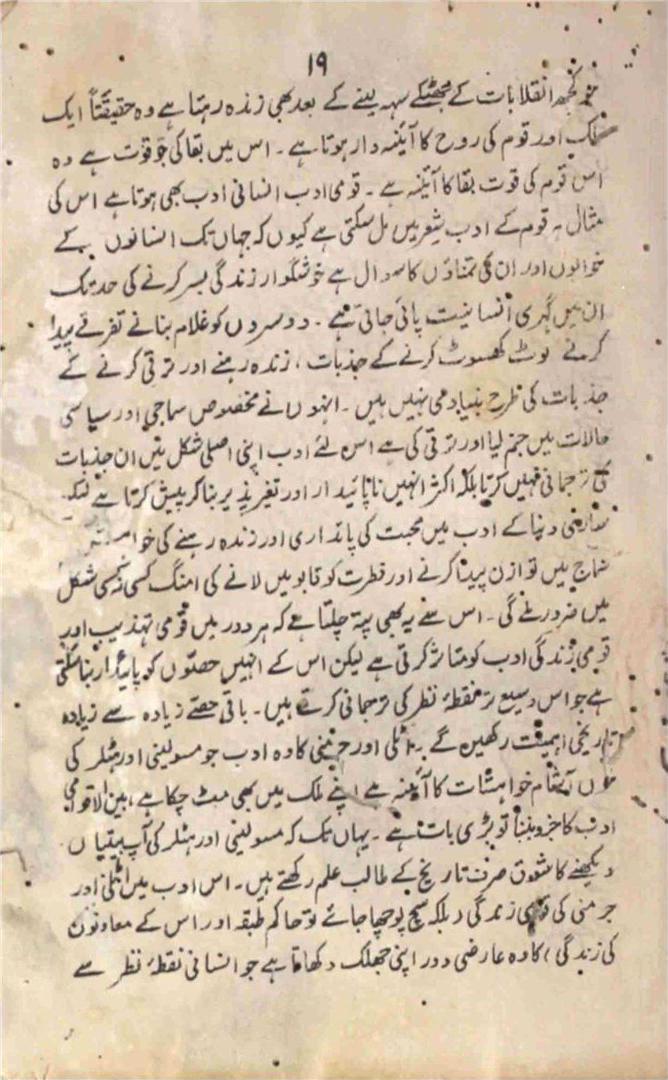 ۱۹
کچھ انقلابات کے جھٹکے سہہ لینے کے بعد بھی زندہ رہتا ہے وہ حقیقتاً ایک
ملک اور قوم کی روح کا آئینہ دار ہوتا ہے۔ اس میں بقا کی جو قوت ہے وہ
اس قوم کی قوت بقا کا آئینہ ہے۔ قومی ادب انسانی ادب بھی ہوتا ہے اس کی
مثال ہر قوم کے ادب شعر میں مل سکتی ہے کیوں کہ جہاں تک انسانوں کے
خوابوں اور ان کی تمناؤں کا سوال ہے خوشگوار زندگی بسر کرنے کی حد تک
ان میں گہری انسانیت پائی جاتی ہے۔ دوسروں کو غلام بنانے تفرقے پیدا
کرنے لوٹ کھسوٹ کرنے کے جذبات، زندہ رہنے اور ترقی کرنے کے
جذبات کی طرح بنیادی نہیں ہیں۔ انہوں نے مخصوص سماجی اور سیاسی
حالات میں جنم لیا اور ترقی کی ہے اس لئے ادب اپنی اصلی شکل میں ان جذبات
کی ترجمانی نہیں کرتا بلکہ اکثر انہیں ناپائیدار اور تغیر پذیر بنا کر پیش کرتا ہے لیکن
دنیا کے ادب میں محبت کی پائداری اور زندہ رہنے کی
سماج میں توازن پیدا کرنے اور فطرت کو قابو میں لانے کی امنگ کسی نہ کسی شکل
میں ضرور ملے گی۔ اس سے یہ بھی پتہ چلتا ہے کہ ہر دور میں قومی تہذیب اور
قومی زندگی ادب کو متاثر کرتی ہے لیکن اس کے انہیں حصوں کو پائیدار بنا سکتی
ہے جو اس وسیع تر نقطۂ نظر کی ترجمانی کرتے ہیں۔ باقی حصے زیادہ سے زیادہ
تاریخی اہمیت رکھیں گے۔ اٹلی اور جرمنی کا وہ ادب جو مسولینی اور ہٹلر کی
خوں آشام خواہشات کا آئینہ ہے اپنے ملک میں بھی مٹ چکا ہے، بین الاقوامی
ادب کا جزو بننا تو بڑی بات ہے۔ یہاں تک کہ مسولینی اور ہٹلر کی آپ بیتیاں
دیکھنے کا شوق صرف تاریخ کے طالب علم رکھتے ہیں۔ اس ادب میں اٹلی اور
جرمنی کی قومی زندگی (بلکہ سچ پوچھا جائے تو حاکم طبقہ اور اس کے معاونوں
کی زندگی) کا وہ عارضی دور اپنی جھلک دکھاتا ہے جو انسانی نقطۂ نظر سے